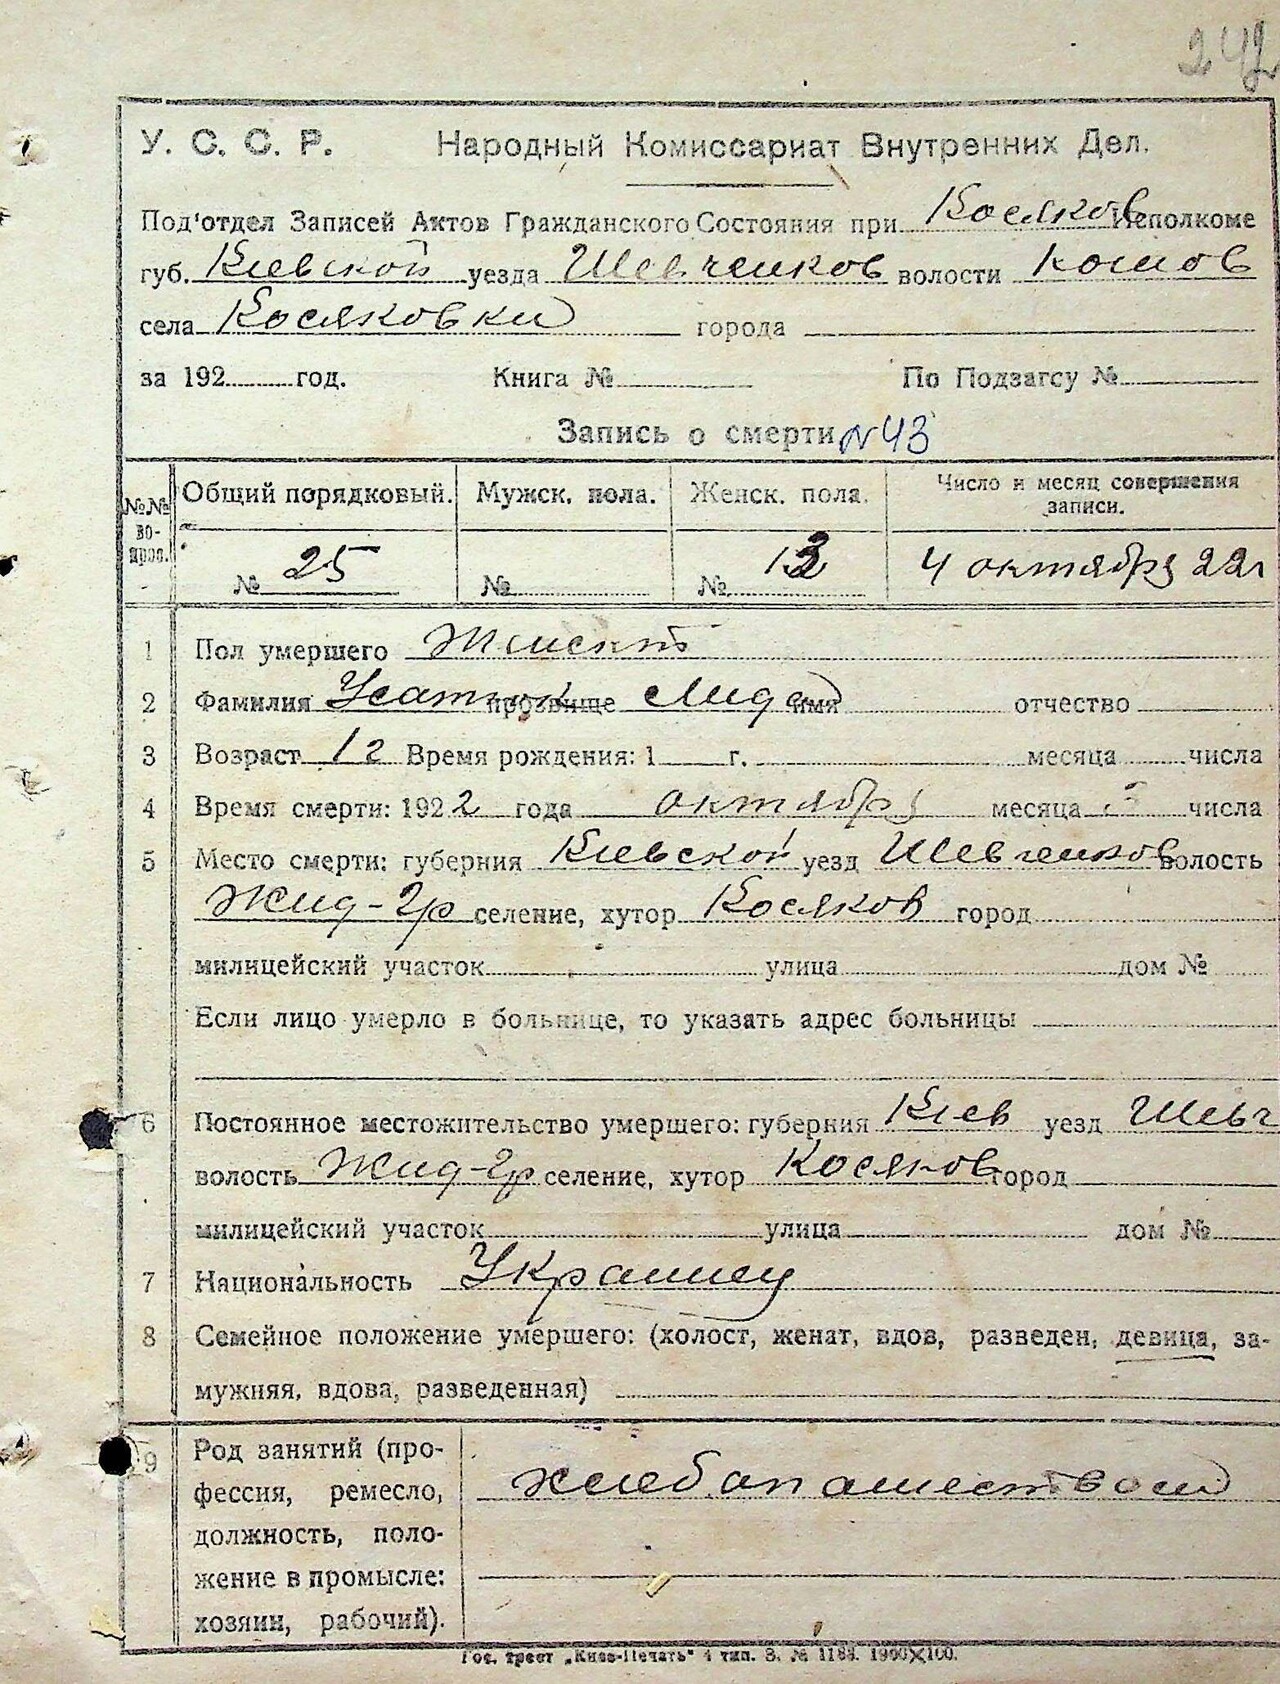 242
У. С. С. Р. Народный Комиссариат Внутренних Дел.
Под'отдел Записей Актов Гражданского Состояния при Косяков Исполкоме
губ. Киевской уезда Шевченков волости
села Косяковки города
за 192 год. Книга № По Подзагсу №
Запись о смерти N43
№№ вопрос. Общий порядковый. Мужск. пола. Женск. пола. Число и месяц совершения записи.
№ 25 № № 13 4 октября 22г
1 Пол умершего Женский
2 Фамилия прозвище имя отчество
3 Возраст 12 Время рождения: 1 г. месяца числа
4 Время смерти: 1922 года октября месяца 3 числа
5 Место смерти: губерния Киевской уезд Шевченков волость
Жид-Гр селение, хутор Косяков город
милицейский участок улица дом №
Если лицо умерло в больнице, то указать адрес больницы
6 Постоянное местожительство умершего: губерния Киев уезд Шевч
волость Жид-Гр селение, хутор Косяков город
милицейский участок улица дом №
7 Национальность Украинец
8 Семейное положение умершего: (холост, женат, вдов, разведен, девица, за-
мужняя, вдова, разведенная)
9 Род занятий (про-
фессия, ремесло, хлебопашеством
должность, поло-
жение в промысле:
хозяин, рабочий).
Гос. трест „Киев-Печать" 4 тип. З. № 1183. 1900✕100.